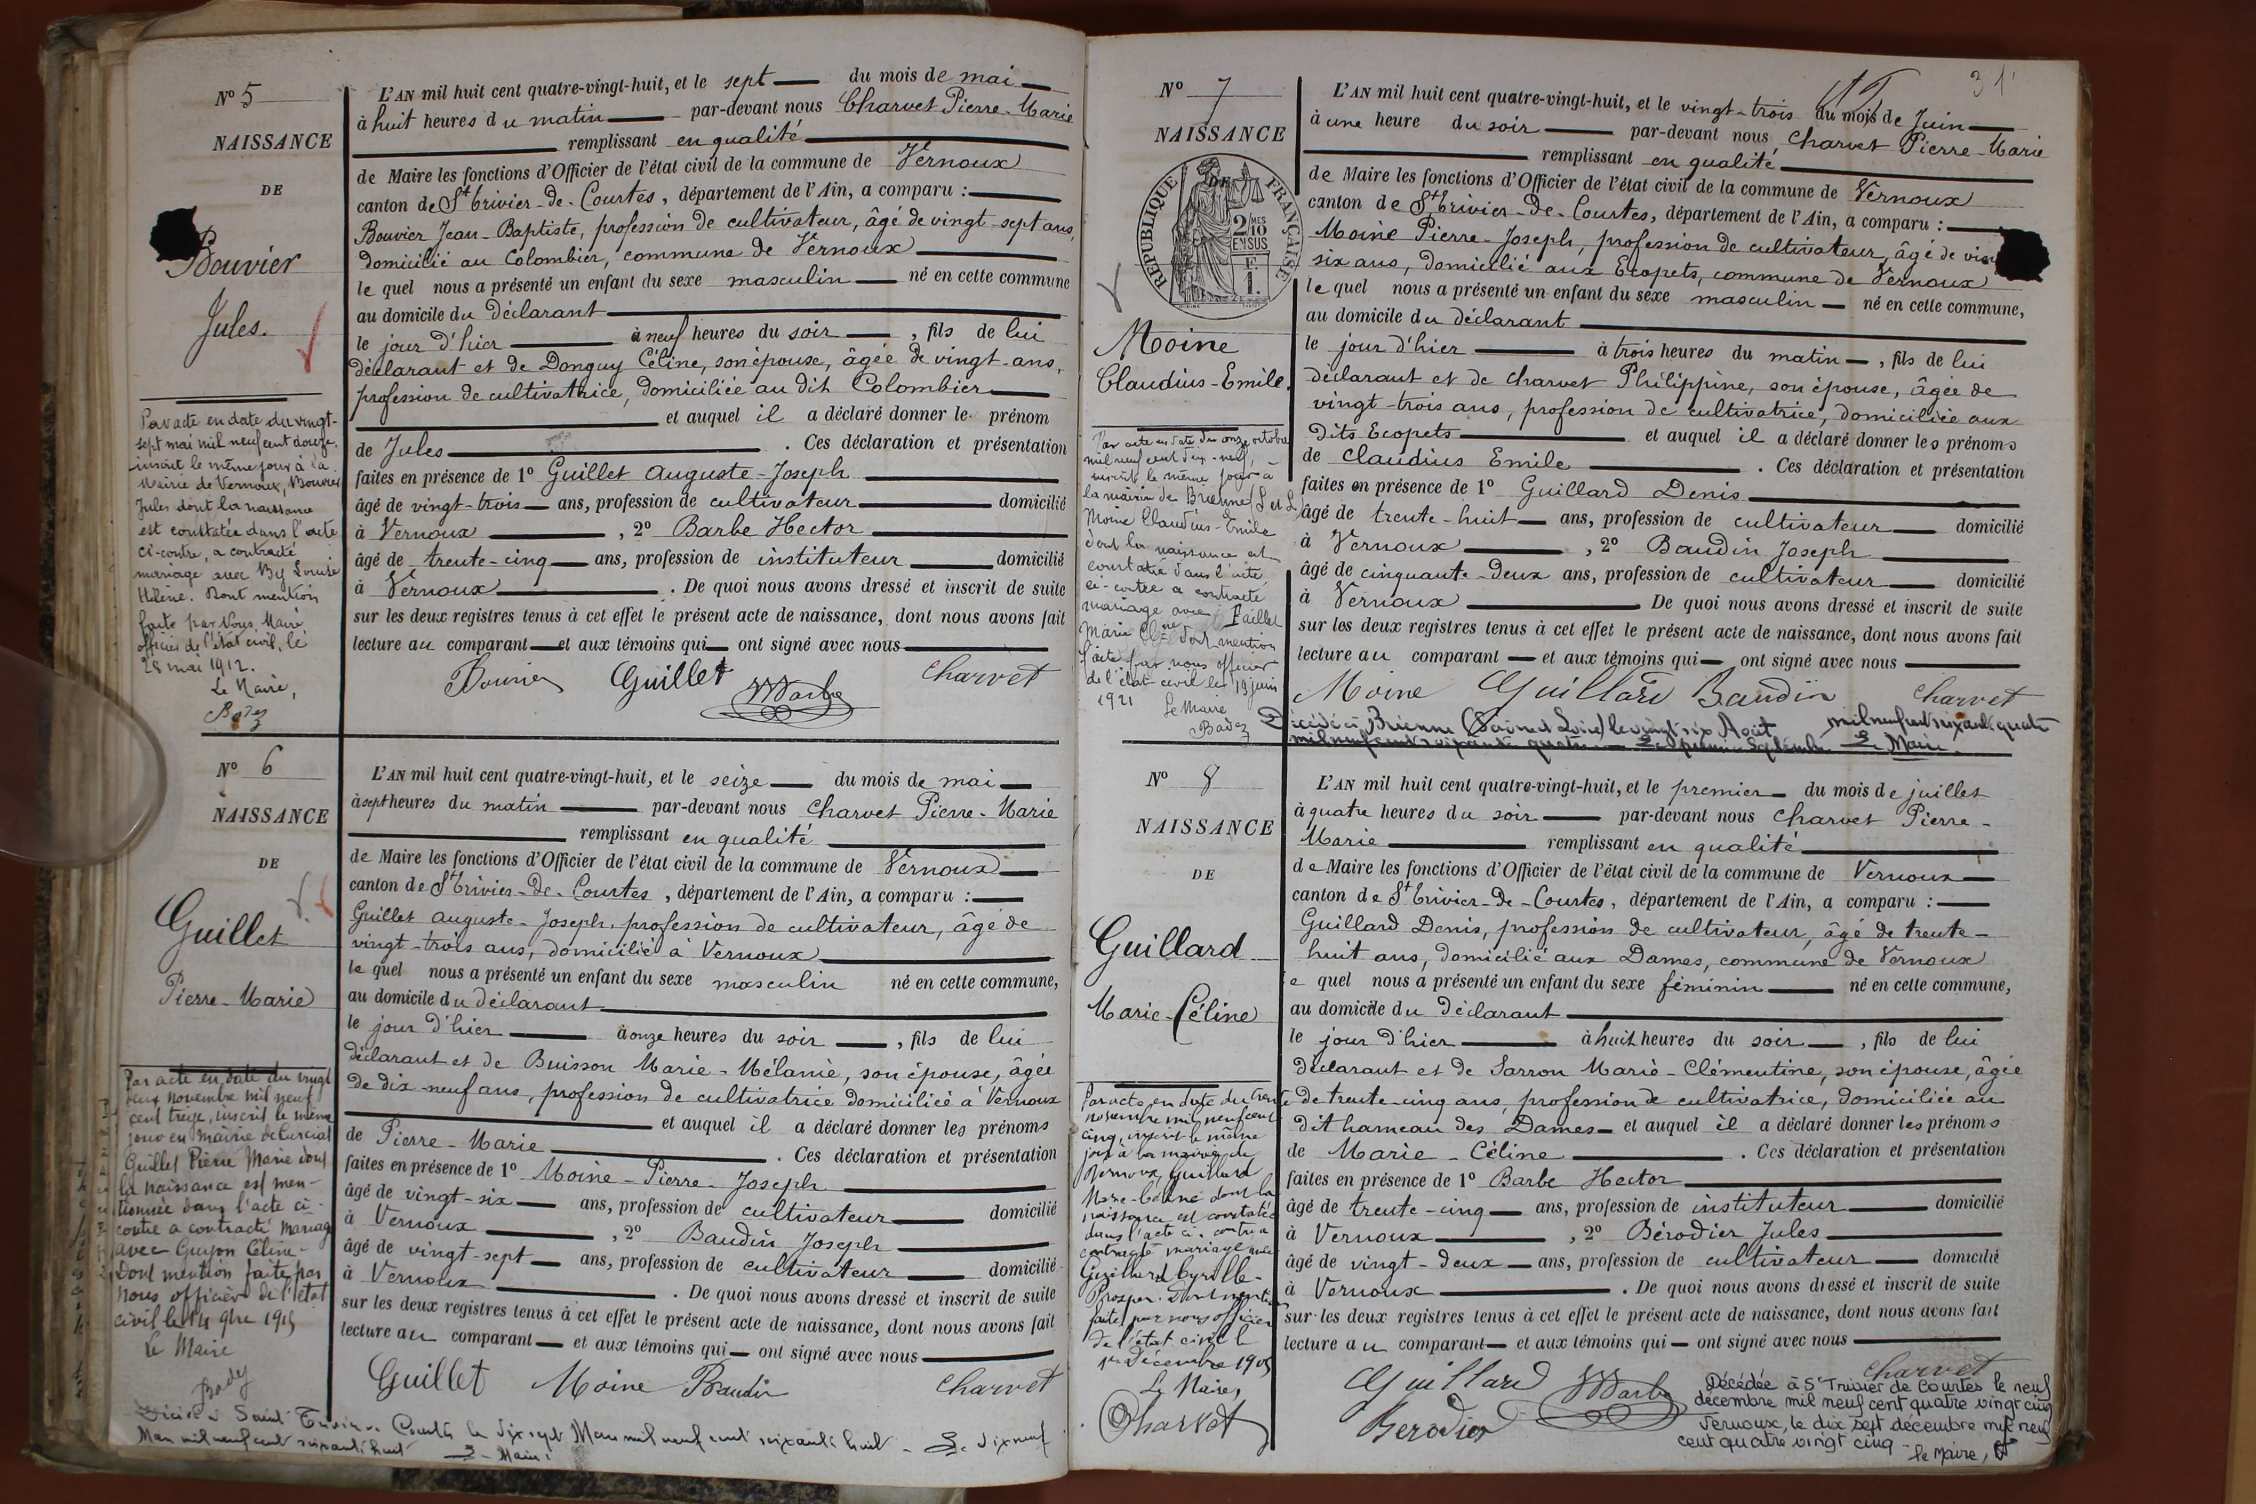 N° 5
NAISSANCE
DE
Bouvier
Jules.
Par acte en date du vingt-
sept mai mil neuf cent douze,
inscrit le même jour à la
Mairie de Vernoux, Bouvier
Jules dont la naissance
est constatée dans l'acte
ci-contre, a contracté
mariage avec By Louise
Hélène. Dont mention
faite par Nous, Maire,
officier de l'état civil, le
28 mai 1912.
Le Maire,
L'AN mil huit cent quatre-vingt-huit, et le sept du mois de mai
à huit heures du matin par-devant nous Charvet Pierre-Marie
remplissant en qualité
de Maire les fonctions d'Officier de l'état civil de la commune de Vernoux
canton de St Trivier-de-Courtes, département de l'Ain, a comparu :
Bouvier Jean-Baptiste, profession de cultivateur, âgé de vingt-sept ans,
domicilié au Colombier, commune de Vernoux
le quel nous a présenté un enfant du sexe masculin né en cette commune
au domicile du déclarant
le jour d'hier à neuf heures du soir, fils de lui
déclarant et de Donguy Céline, son épouse, âgée de vingt-ans,
profession de cultivatrice, domiciliée au dit Colombier
et auquel il a déclaré donner le prénom
de Jules. Ces déclaration et présentation
faites en présence de 1° Guillet Auguste-Joseph
âgé de vingt-trois ans, profession de cultivateur domicilié
à Vernoux, 2° Barbe Hector
âgé de trente-cinq ans, profession de instituteur domicilié
à Vernoux. De quoi nous avons dressé et inscrit de suite
sur les deux registres tenus à cet effet le présent acte de naissance, dont nous avons fait
lecture au comparant et aux témoins qui ont signé avec nous
Bouvier Guillet Barbe Charvet
N° 6
NAISSANCE
DE
Guillet
Pierre-Marie
Par acte en date du vingt
deux novembre mil neuf
cent treize, inscrit le même
jour en mairie de Curciat
Guillet Pierre Marie dont
la naissance est men-
tionnée dans l'acte ci-
contre a contracté mariage
avec Guyon Céline-
Dont mention faite par
nous officier de l'état
civil le 14 9bre 1915
Le Maire
L'AN mil huit cent quatre-vingt-huit, et le seize du mois de mai
à sept heures du matin par-devant nous Charvet Pierre-Marie
remplissant en qualité
de Maire les fonctions d'Officier de l'état civil de la commune de Vernoux
canton de St Trivier-de-Courtes, département de l'Ain, a comparu :
Guillet Auguste-Joseph, profession de cultivateur, âgé de
vingt-trois ans, domicilié à Vernoux
le quel nous a présenté un enfant du sexe masculin né en cette commune,
au domicile du déclarant
le jour d'hier à onze heures du soir, fils de lui
déclarant et de Buisson Marie-Mélanie, son épouse, âgée
de dix-neuf ans, profession de cultivatrice domiciliée à Vernoux
et auquel il a déclaré donner les prénoms
de Pierre-Marie. Ces déclaration et présentation
faites en présence de 1° Moine-Pierre-Joseph
âgé de vingt-six ans, profession de cultivateur domicilié
à Vernoux, 2° Baudin Joseph
âgé de vingt-sept ans, profession de cultivateur domicilié
à Vernoux. De quoi nous avons dressé et inscrit de suite
sur les deux registres tenus à cet effet le présent acte de naissance, dont nous avons fait
lecture au comparant et aux témoins qui ont signé avec nous
Guillet Moine Baudin Charvet
Décédé à Saint Trivier de Courtes le dix sept Mars mil neuf cent soixante huit - Le dix neuf
Mars mil neuf cent soixante huit Le Maire
31
N° 7
NAISSANCE
DE
RÉPUBLIQUE FRANÇAISE
2 MES 10 EN SUS
F. 1.
Moine
Claudius-Emile.
Par acte en date du onze octobre
mil neuf cent dix-neuf,
inscrit le même jour à
la mairie de Brienne (S et L)
Moine Claudius-Emile
dont la naissance est
constatée dans l'acte
ci-contre a contracté
mariage avec Faillet
Marie dont mention
faite par nous officier
de l'état civil le 19 juin
1921 Le Maire
L'AN mil huit cent quatre-vingt-huit, et le vingt-trois du mois de Juin
à une heure du soir par-devant nous, Charvet Pierre-Marie
remplissant en qualité
de Maire les fonctions d'Officier de l'état civil de la commune de Vernoux
canton de St Trivier-de-Courtes, département de l'Ain, a comparu :
Moine Pierre-Joseph, profession de cultivateur, âgé de
six ans, domicilié aux Ecopets, commune de Vernoux
le quel nous a présenté un enfant du sexe masculin né en cette commune,
au domicile du déclarant
le jour d'hier à trois heures du matin, fils de lui
déclarant et de Charvet Philippine, son épouse, âgée de
vingt-trois ans, profession de cultivatrice, domiciliée aux
dits Ecopets et auquel il a déclaré donner les prénoms
de Claudius Emile. Ces déclaration et présentation
faites en présence de 1° Guillard Denis
âgé de trente-huit ans, profession de cultivateur domicilié
à Vernoux, 2° Baudin Joseph
âgé de cinquante-deux ans, profession de cultivateur domicilié
à Vernoux De quoi nous avons dressé et inscrit de suite
sur les deux registres tenus à cet effet le présent acte de naissance, dont nous avons fait
lecture au comparant et aux témoins qui ont signé avec nous
Moine Guillard Baudin Charvet
Décédé à Brienne (Saône et Loire) le vingt six Août mil neuf cent soixante quatre
mil neuf cent soixante quatre Le premier Septembre Le Maire
N° 8
NAISSANCE
DE
Guillard
Marie-Céline
Par acte en date du trente
novembre mil neuf cent
cinq, inscrit le même
jour à la mairie de
Vernoux, Guillard
Marie-Céline dont la
naissance est constatée
dans l'acte ci-contre a
contracté mariage avec
Guillard Cyrille-
Prosper. Dont mention
faite par nous officier
de l'état civil
1er Décembre 1905
Le Maire,
Charvet
L'AN mil huit cent quatre-vingt-huit, et le premier du mois de juillet
à quatre heures du soir par-devant nous Charvet Pierre-
Marie remplissant en qualité
de Maire les fonctions d'Officier de l'état civil de la commune de Vernoux
canton de St Trivier-de-Courtes, département de l'Ain, a comparu :
Guillard Denis, profession de cultivateur, âgé de trente-
huit ans, domicilié aux Dames, commune de Vernoux
e quel nous a présenté un enfant du sexe féminin né en cette commune,
au domicile du déclarant
le jour d'hier à huit heures du soir, fils de lui
déclarant et de Sarron Marie-Clémentine, son épouse, âgée
de trente-cinq ans, profession de cultivatrice, domiciliée au
dit hameau des Dames et auquel il a déclaré donner les prénoms
de Marie-Céline. Ces déclaration et présentation
faites en présence de 1° Barbe Hector
âgé de trente-cinq ans, profession de instituteur domicilié
à Vernoux, 2° Bérodier Jules
âgé de vingt-deux ans, profession de cultivateur domicilié
à Vernoux. De quoi nous avons dressé et inscrit de suite
sur les deux registres tenus à cet effet le présent acte de naissance, dont nous avons fait
lecture au comparant et aux témoins qui ont signé avec nous
Guillard Barbe Charvet
Berodier
Décédée à St Trivier de Courtes le neuf
décembre mil neuf cent quatre vingt cinq
Vernoux, le dix sept décembre mil neuf
cent quatre vingt cinq -
Le Maire,